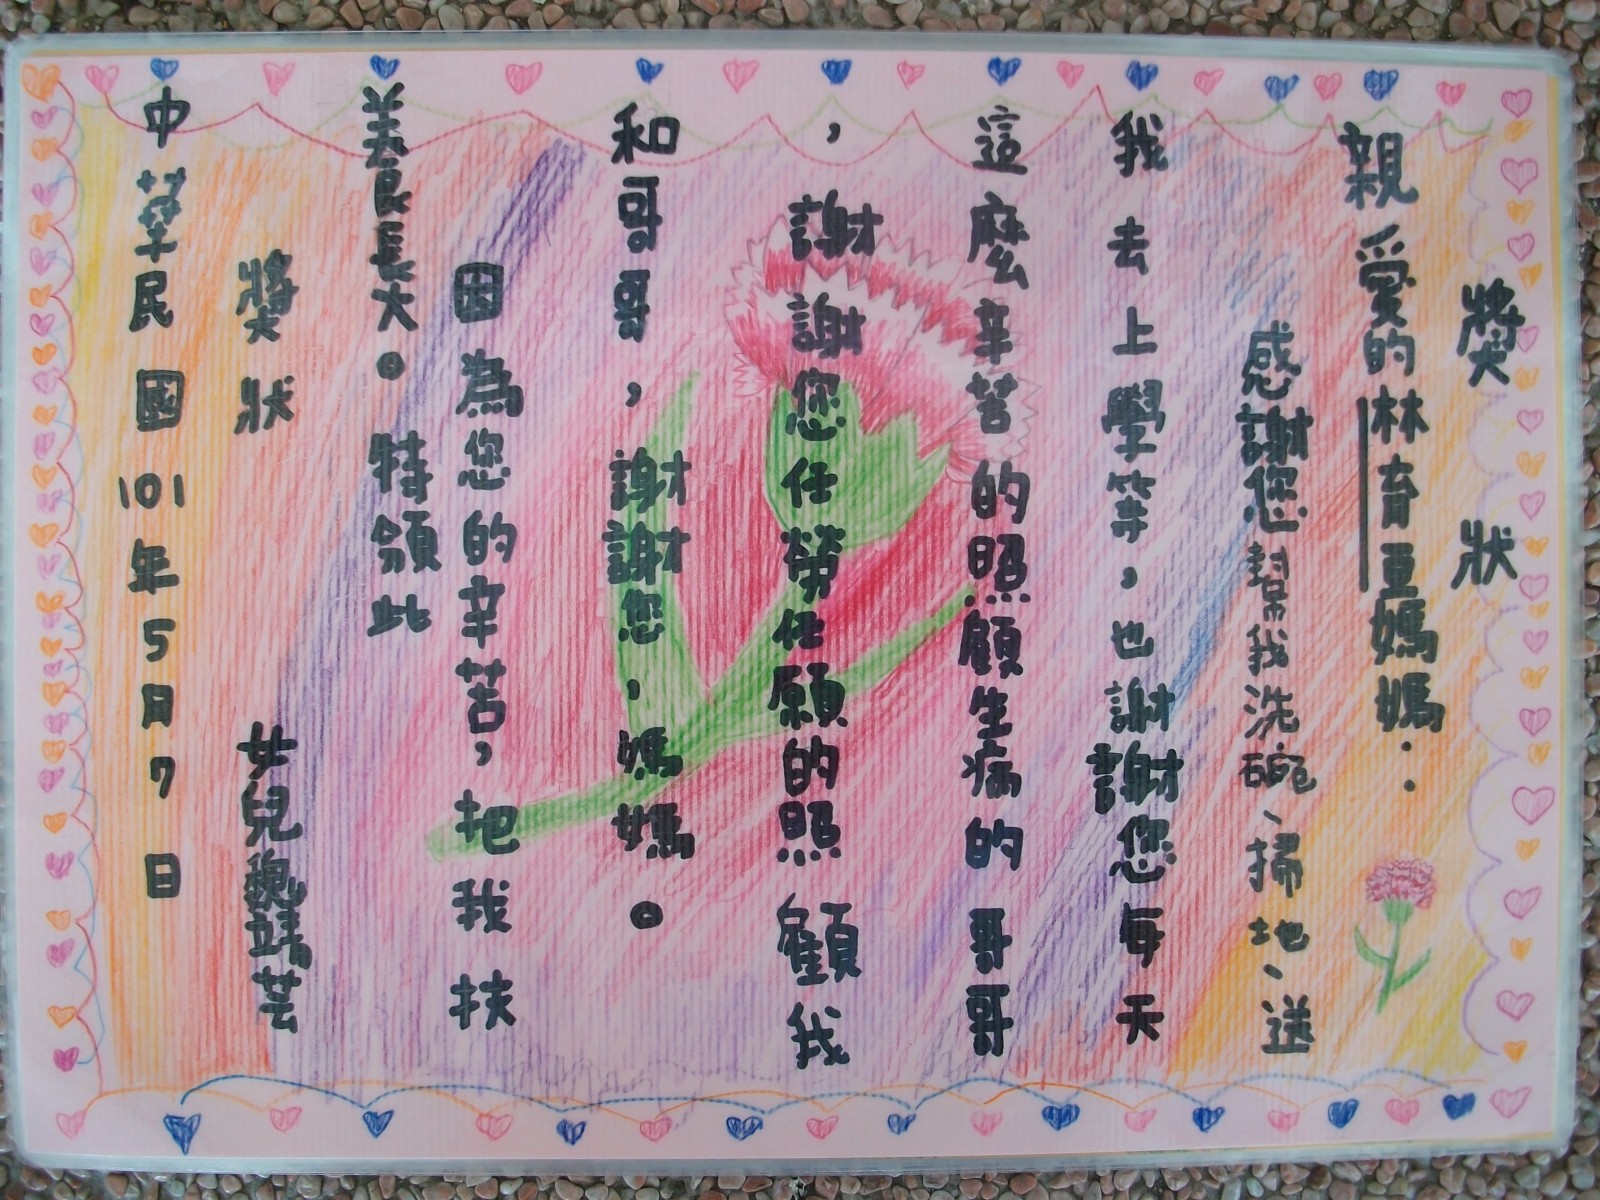 獎狀
親愛的林育亘媽媽:
感謝您幫我洗碗、掃地、送
我去上學等,也謝謝您每天
這麼辛苦的照顧生病的哥哥
,謝謝您任勞任願的照顧我
和哥哥,謝謝您,媽媽。
因為您的辛苦,把我扶
養長大。特頒此
獎狀 女兒魏靖芸
中華民國101年5月7日